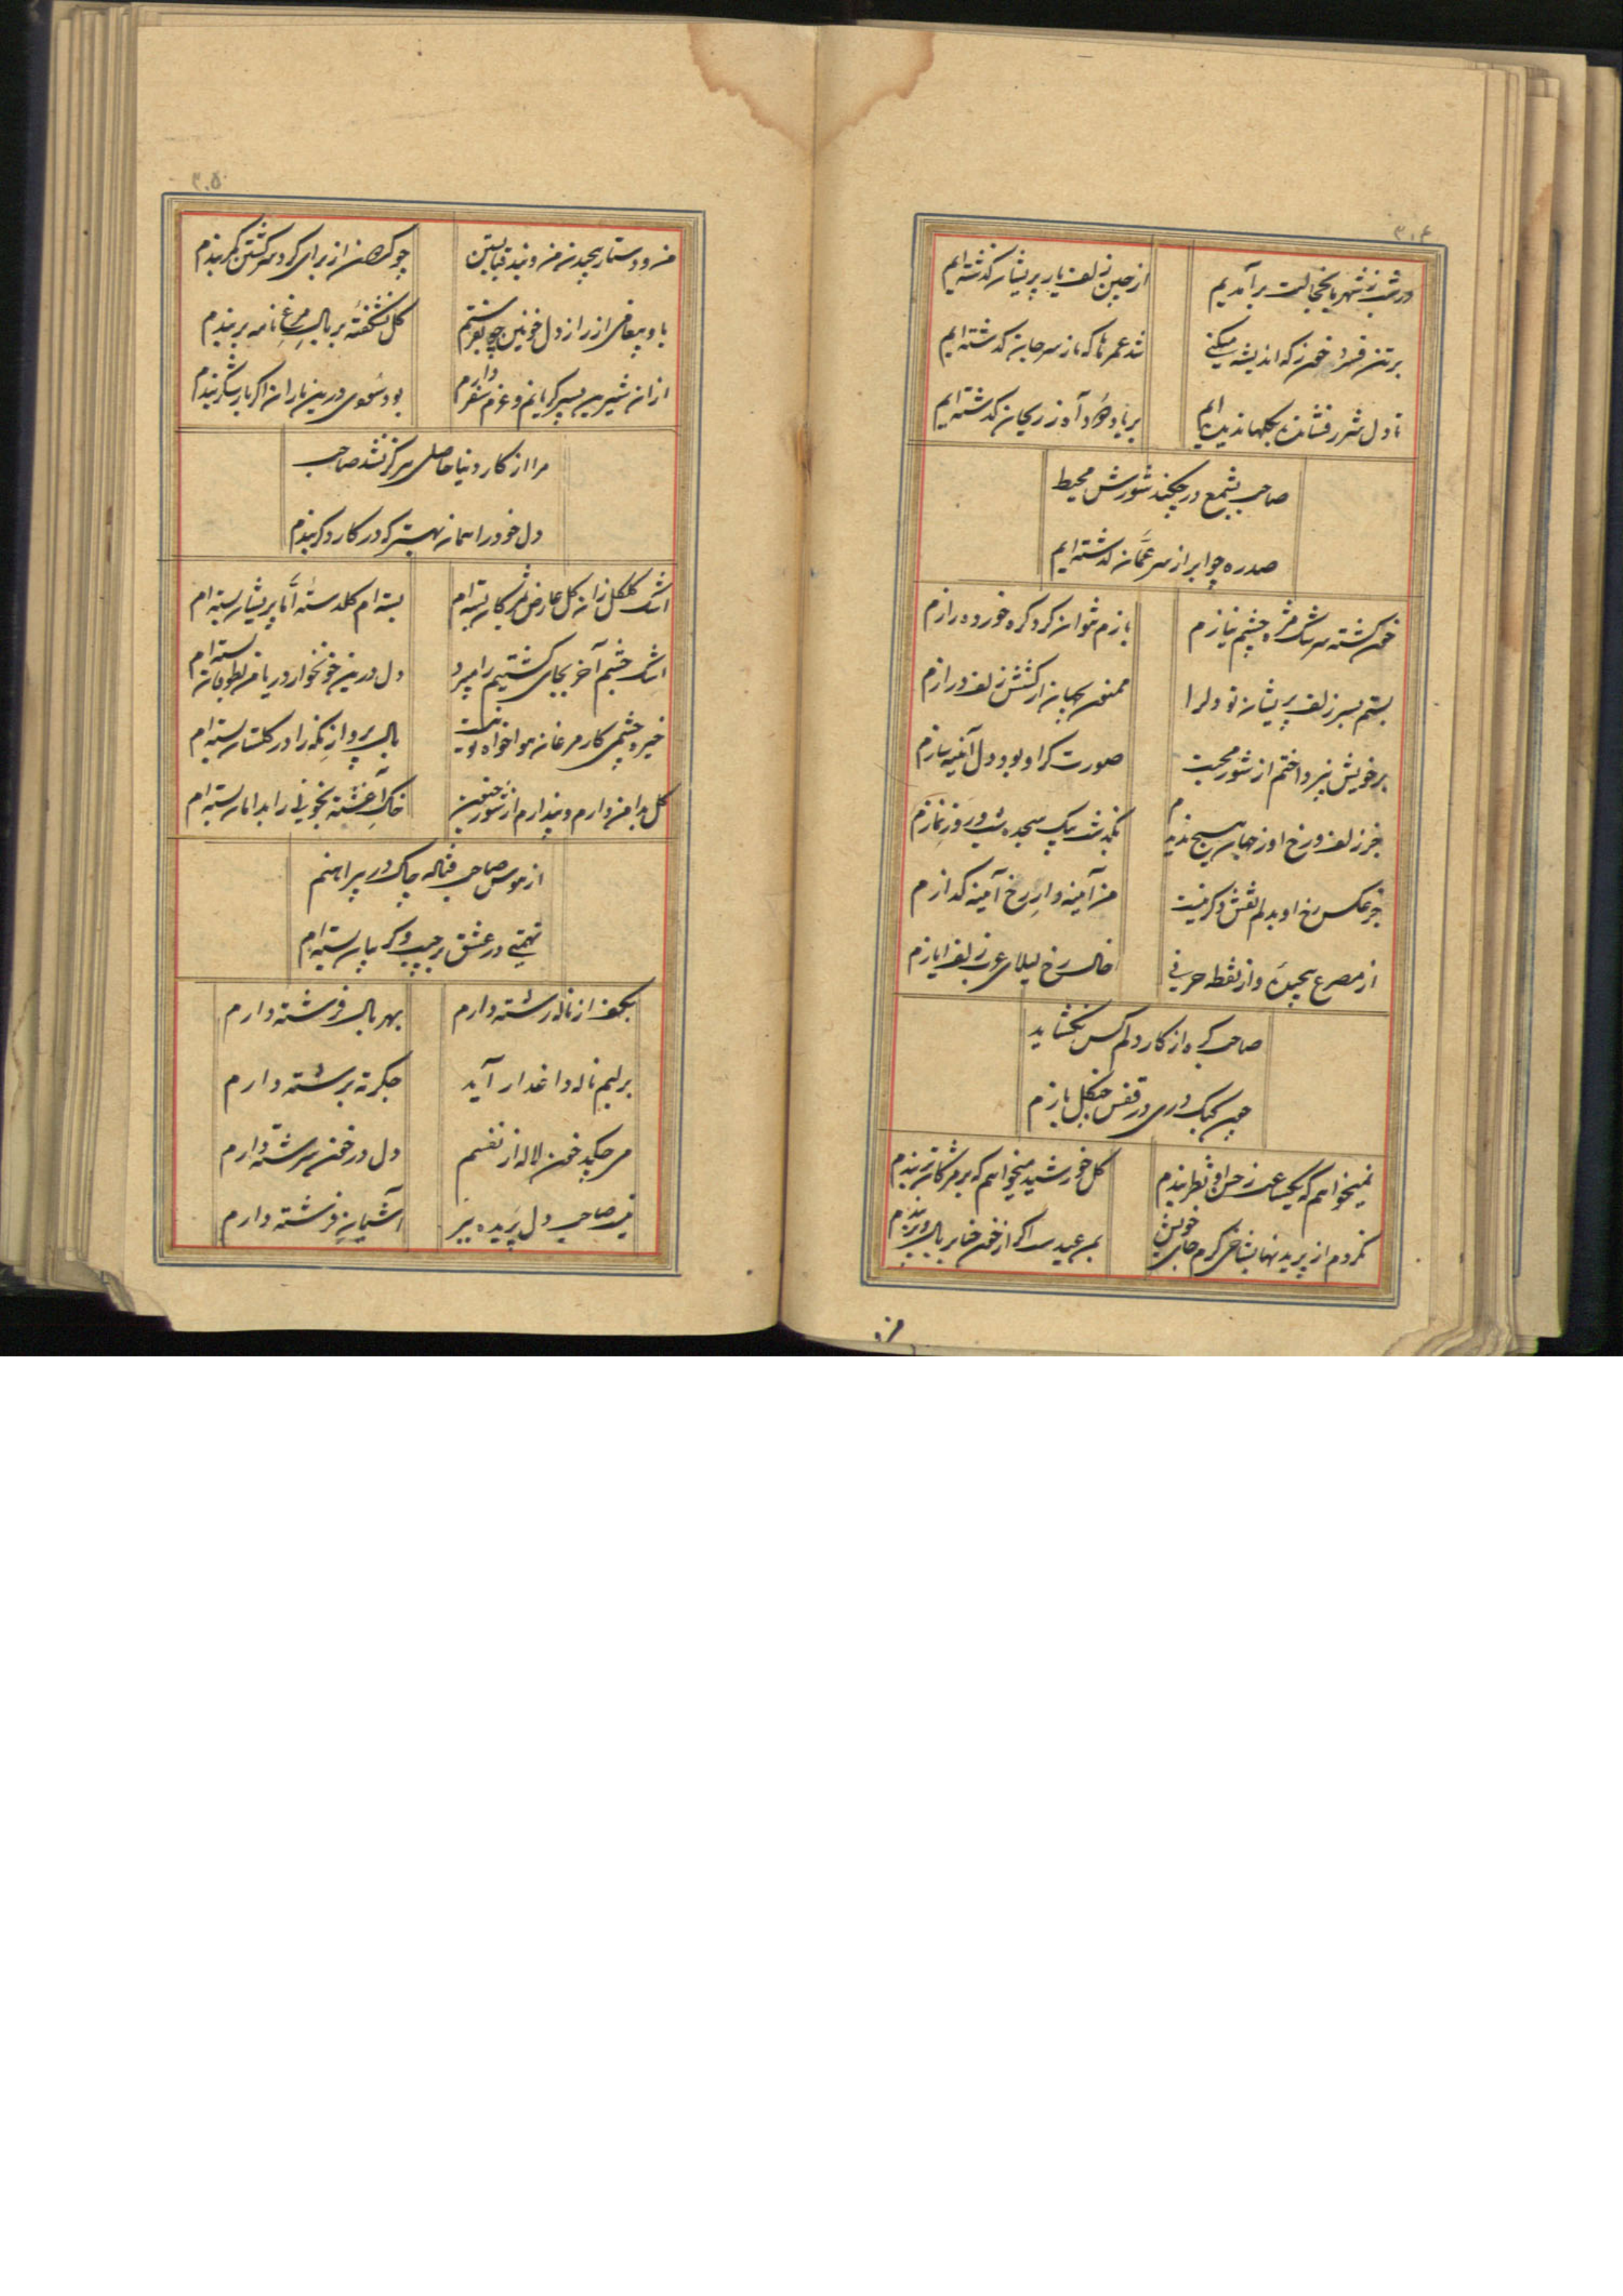 ۳۰۴
در شب ز شهر با خجالت برآمدیم
از چین زلف یار پریشان گذشته ایم
برتن فسرد خون ز که اندیشه میکنی
شد عمرها که ما ز سر جان گذشته ایم
تا دل شرر فشانده بگلها ندیده ایم
بر یاد او ز ریحان گذشته ایم
صاحب بشمع در چکند شورش محیط
صدره چو ابر از سر عمان گذشته ایم
خون گشته سرشک مژه چشم نیازم
بازم نتوان کرد گره خورده رازم
بستم بسر زلف پریشان تو دل را
ممنون بجهان از کشش زلف درازم
بر خویش نپرداختم از شور محبت
صورت گر او بود دل آئینه سازم
جز زلف و رخ او ز جهان هیچ ندیدم
بگذشت بیک سجده شب و روز نمازم
جز عکس رخ او بدلم نقش دگر نیست
من آینه وار رخ آینه گدازم
از مصرع پیچیده و از نقطه حرفی
خال رخ لیلای عرب زلف ایازم
صاحب گره از کار دلم کس نگشاید
چون کبک دری در قفس چنگل بازم
نمیخواهم که یکساعت ز حسن او نظر بندم
گل خورشید میخواهم که بر مژگان تر بندم
نکردم از پریدنها بشاخی گرم جای خویش
بمن عید است اگر از خون حنا بر بال و پر بندم
من
۳۰۵
من و دستار پیچیدن من و بند قبا بستن
چو گردون از برای گرد سر گشتن کمر بندم
باو پیغامی از راز دل خونین چه بفرستم
گل نشکفته بر بال مرغ نامه بر بندم
ازان شیرین پسر گریانم و عزم سفر دارم
بود سوی درین باران اگر بار شکر بندم
مرا از کار دنیا حاصلی هرگز نشد صاحب
دل خود را همان بهتر که در کار دگر بندم
اشک گلگل زان گل عارض بمژگان بسته ام
بسته ام گلدسته اما پریشان بسته ام
اشک چشم آخر بجای کشتیم را میبرد
دل درین خونخوار دریا من بطوفان بسته ام
خیره چشمی کار مرغان هوا خواه تو نیست
بال پرواز نگه را در گلستان بسته ام
گل بدامن دارم و پندارم از شور جنون
خاک آغشته بخونی را بدامان بسته ام
از هوس صاحب فتاله چاک در پیراهنم
تهمتی در عشق بر جیب و گریبان بسته ام
بکف از ناله رشته دارم
بهر بال فرشته دارم
بر لبم ناله داغدار آید
جگر ته برشته دارم
می چکد خون لاله از نفسم
دل در خون سرشته دارم
نیست صاحب دل پریده ببر
آشیان فرشته دارم